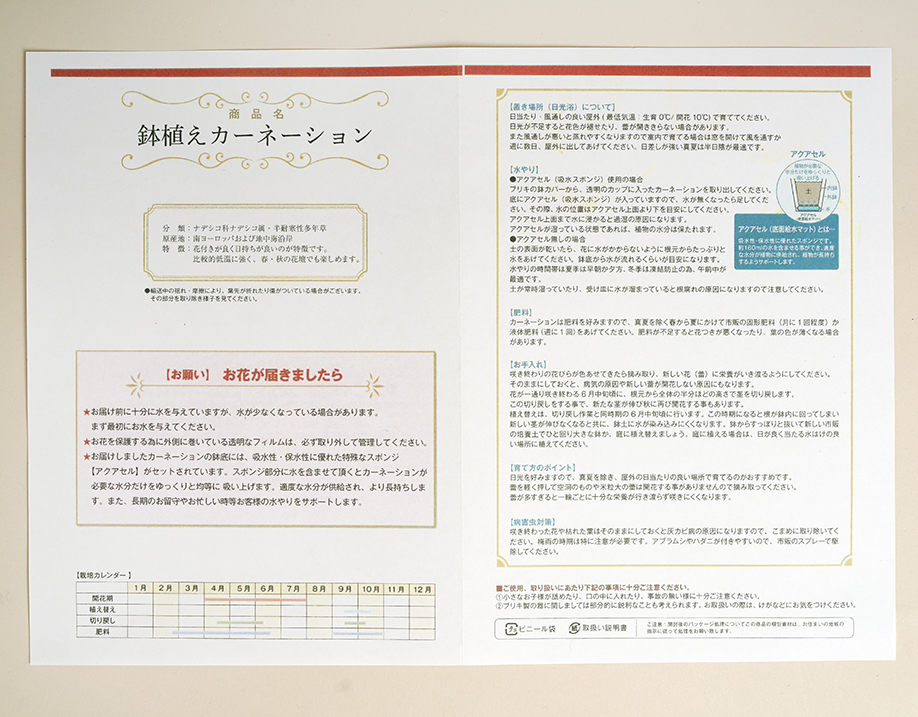 商品名
鉢植えカーネーション
分 類：ナデシコ科ナデシコ属・半耐寒性多年草
原産地：南ヨーロッパおよび地中海沿岸
特 徴：花付きが良く日持ちが良いのが特徴です。
比較的低温に強く、春・秋の花壇でも楽しめます。
●輸送中の揺れ・摩擦により、葉先が折れたり傷がついている場合がございます。
その部分を取り除き様子を見てください。
【お願い】 お花が届きましたら
★お届け前に十分に水を与えていますが、水が少なくなっている場合があります。
まず最初にお水を与えてください。
★お花を保護する為に外側に巻いている透明なフィルムは、必ず取り外して管理してください。
★お届けしましたカーネーションの鉢底には、吸水性・保水性に優れた特殊なスポンジ
【アクアセル】がセットされています。スポンジ部分に水を含ませて頂くとカーネーションが
必要な水分だけをゆっくりと均等に 吸い上げます。適度な水分が供給され、より長持ちしま
す。また、長期のお留守やお忙しい時等お客様の水やりをサポートします。
【栽培カレンダー】
1月 2月 3月 4月 5月 6月 7月 8月 9月 10月 11月 12月
開花期
植え替え
切り戻し
肥料
【置き場所（日光浴）について】
日当たり・風通しの良い屋外（最低気温：生育 0℃/ 開花 10℃）で育ててください。
日光が不足すると花色が褪せたり、蕾が開ききらない場合があります。
また風通しが悪いと蒸れやすくなりますので室内で育てる場合は窓を開けて風を通すか
週に数日、屋外に出してあげてください。日差しが強い真夏は半日陰が最適です。
【水やり】
●アクアセル（吸水スポンジ）使用の場合
ブリキの鉢カバーから、透明のカップに入ったカーネーションを取り出してください。
底にアクアセル（吸水スポンジ）が入っていますので、水が無くなったら足してくだ
さい。その際、水の位置はアクアセル上面より下を目安にしてください。
アクアセル上面まで水に浸かると過湿の原因になります。
アクアセルが湿っている状態であれば、植物の水分は保たれます。
●アクアセル無しの場合
土の表面が乾いたら、花に水がかからないように根元からたっぷりと
水をあげてください。鉢底から水が流れるくらいが目安になります。
水やりの時間帯は夏季は早朝か夕方、冬季は凍結防止の為、午前中が
最適です。
土が常時湿っていたり、受け皿に水が溜まっていると根腐れの原因になりますので注意してください。
アクアセル
植物が必要な
水分だけをゆっくりと
吸い上げる
土
内鉢
外鉢
水
アクアセル
(底面給水マット)
アクアセル（底面給水マット）とは…
吸水性・保水性に優れたスポンジです。
約160mlの水を含ませる事ができ、適度
な水分が植物に供給され、植物が長持ち
するようサポートします。
【肥料】
カーネーションは肥料を好みますので、真夏を除く春から夏にかけて市販の固形肥料（月に1回程度）か
液体肥料（週に1回）をあげてください。肥料が不足すると花つきが悪くなったり、葉の色が薄くなる場合
があります。
【お手入れ】
咲き終わりの花びらが色あせてきたら摘み取り、新しい花（蕾）に栄養がいき渡るようにしてください。
そのままにしておくと、病気の原因や新しい蕾が開花しない原因にもなります。
花が一通り咲き終わる6月中旬頃に、根元から全体の半分ほどの高さで茎を切り戻します。
この切り戻しをする事で、新たな茎が伸び秋に再び開花する事もあります。
植え替えは、切り戻し作業と同時期の6月中旬頃に行います。この時期になると根が鉢内に回ってしまい
新しい茎が伸びなくなると共に、鉢土に水が染み込みにくくなります。鉢からすっぽりと抜いて新しい市販
の培養土でひと回り大きな鉢か、庭に植え替えましょう。庭に植える場合は、日が良く当たる水はけの良
い場所に植えてください。
【育て方のポイント】
日光を好みますので、真夏を除き、屋外の日当たりの良い場所で育てるのがおすすめです。
蕾を軽く押して空洞のものや米粒大の蕾は開花する事がありませんので摘み取ってください。
蕾が多すぎると一輪ごとに十分な栄養が行き渡らず咲きにくくなります。
【病害虫対策】
咲き終わった花や枯れた葉はそのままにしておくと灰カビ病の原因になりますので、こまめに取り除いてく
ださい。梅雨の時期は特に注意が必要です。アブラムシやハダニが付きやすいので、市販のスプレーで駆
除してください。
■ご使用、取り扱いにあたり下記の事項に十分ご注意ください。
①小さなお子様が詰めたり、口の中に入れたり、事故の無い様に十分ご注意ください。
②ブリキ製の器に関しましては部分的に鋭利なことも考えられます。お取扱いの際は、けがなどにお気をつけください。
プラ ビニール袋 紙 取扱い説明書
ご注意：開封後のパッケージ処理についてこの商品の梱包資材は、お住まいの地域の
指示に従って処理をお願い致します。